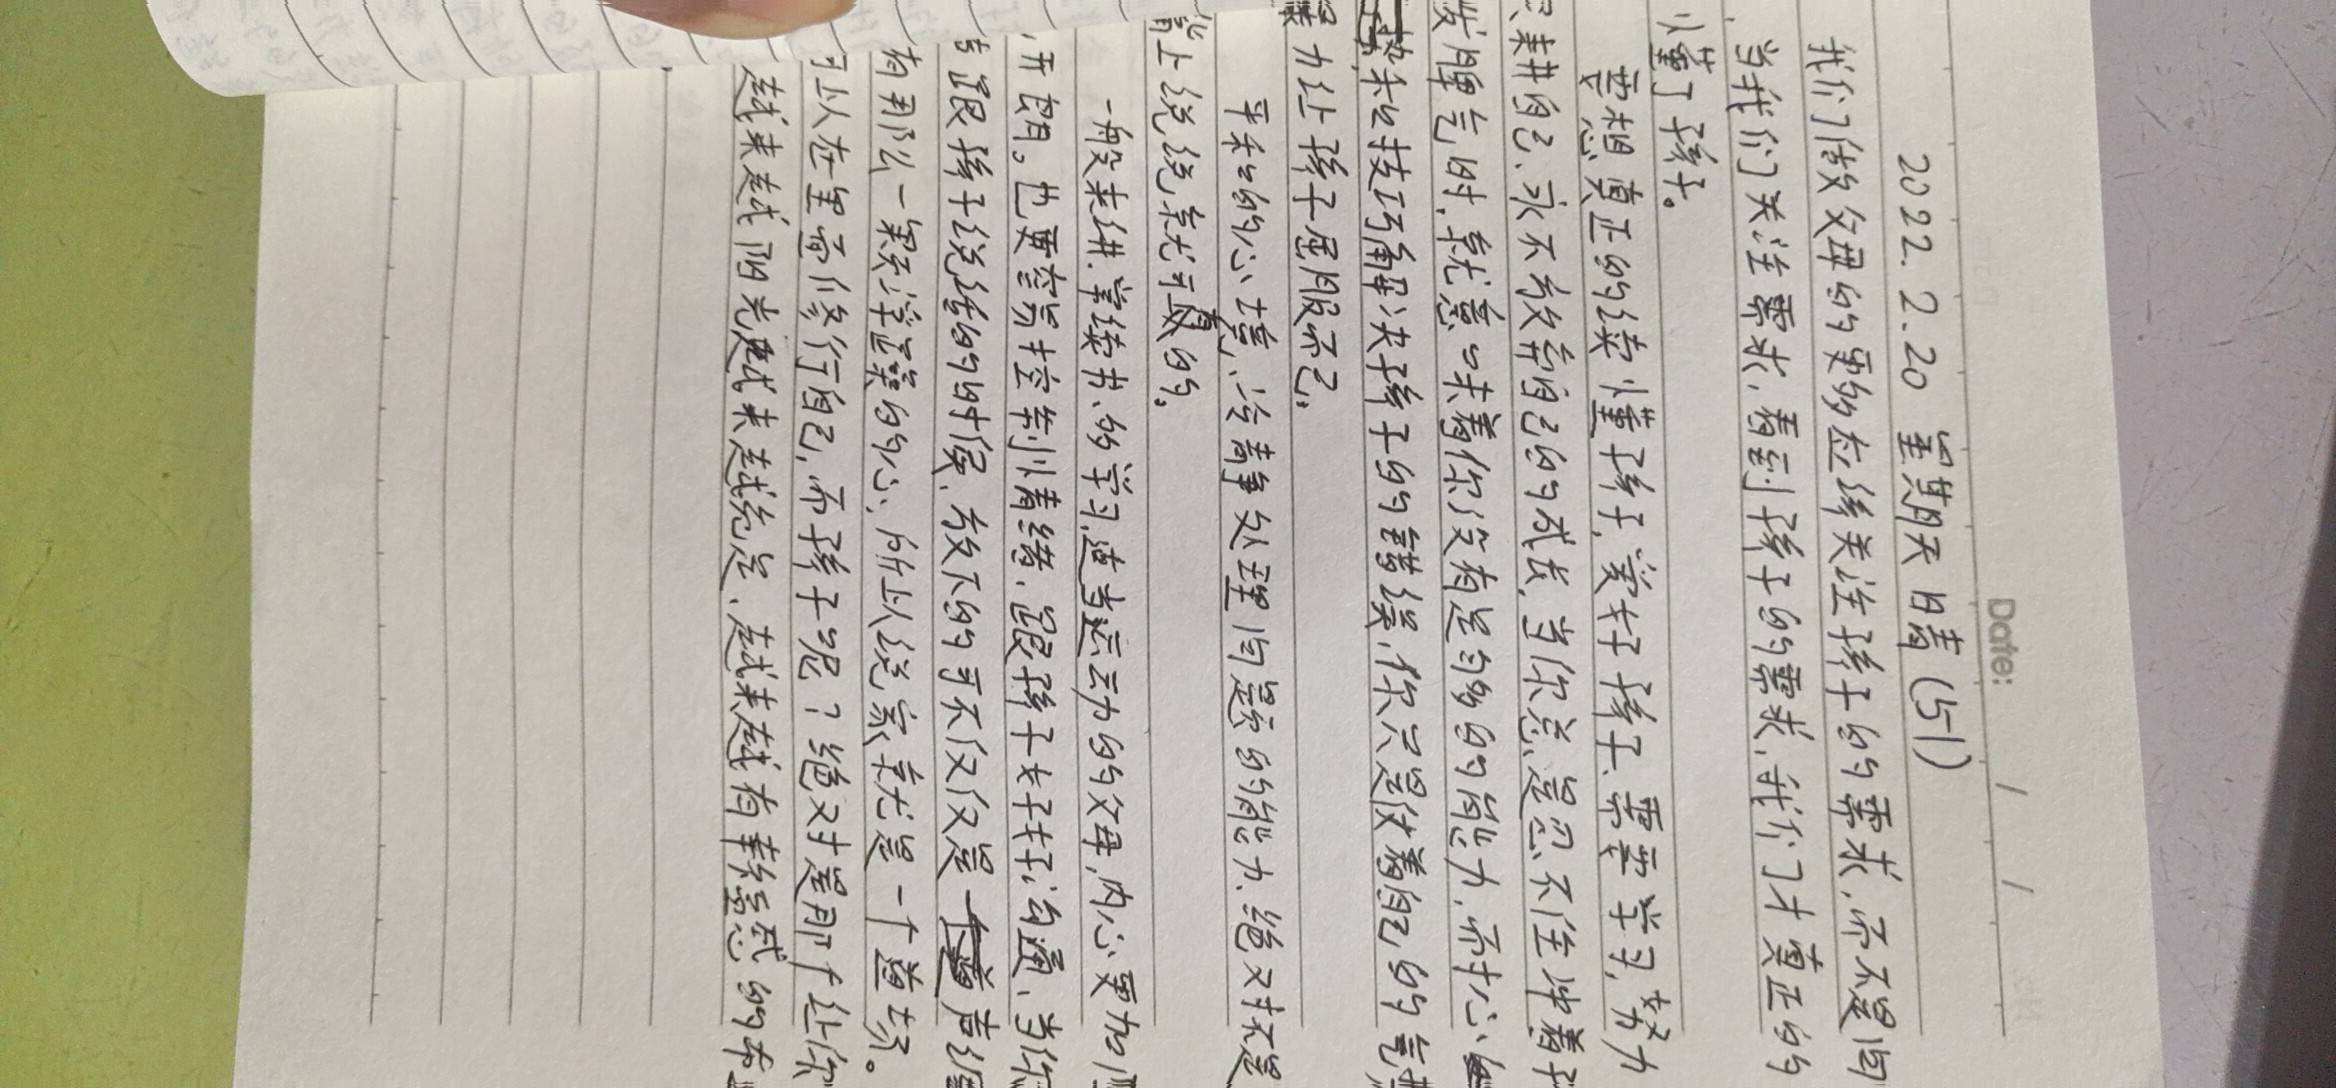 Date: / /
2022.2.20 星期天 晴 (51)
我们做父母的更多应该关注孩子的需求,而不是问
当我们关注需求,看到孩子的需求,我们才真正的
懂了孩子。
要想真正的读懂孩子,爱好孩子、需要学习,努力
来耕自己、永不放弃自己的成长,当你总是忍不住冲着孩
发脾气时,就意味着你没有足够多的能力,耐心
势和技巧解决孩子的错误,你只是仗着自己的气
力让孩子屈服而已。
平和的心境,冷静处理问题的能力、绝对不是
嘴上说说就可以的。
一般来讲,常读书、多学习,适当运动的父母,内心更加
开朗。也更容易控制情绪、跟孩子好好沟通、当你
跟孩子说话的时候、放下的可不仅仅是一 声
有那么一颗浮躁的心,所以说家就是一个道场。
可以在里面修行自己,而孩子呢?绝对是那个让你
越来越阳光越来越完足、越来越有幸福感的